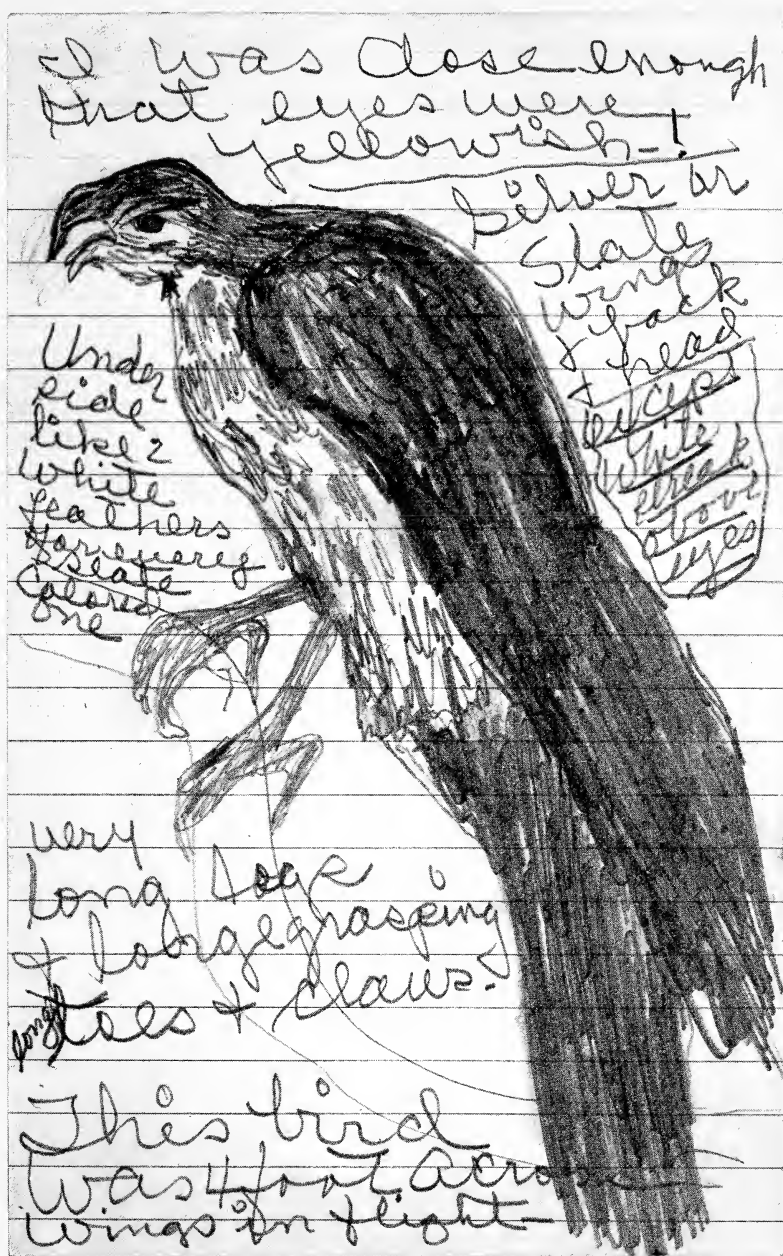 I was close enough
that eyes were
yellowish-!
Silver or
Slate
wings
& back
& head
except
white
streak
above
eyes
Under
side
like 2
white
feathers
for every
slate
Colored
one
very
long legs
& large grasping
long toes & claws.
This bird
was 4 foot across
wings in flight-